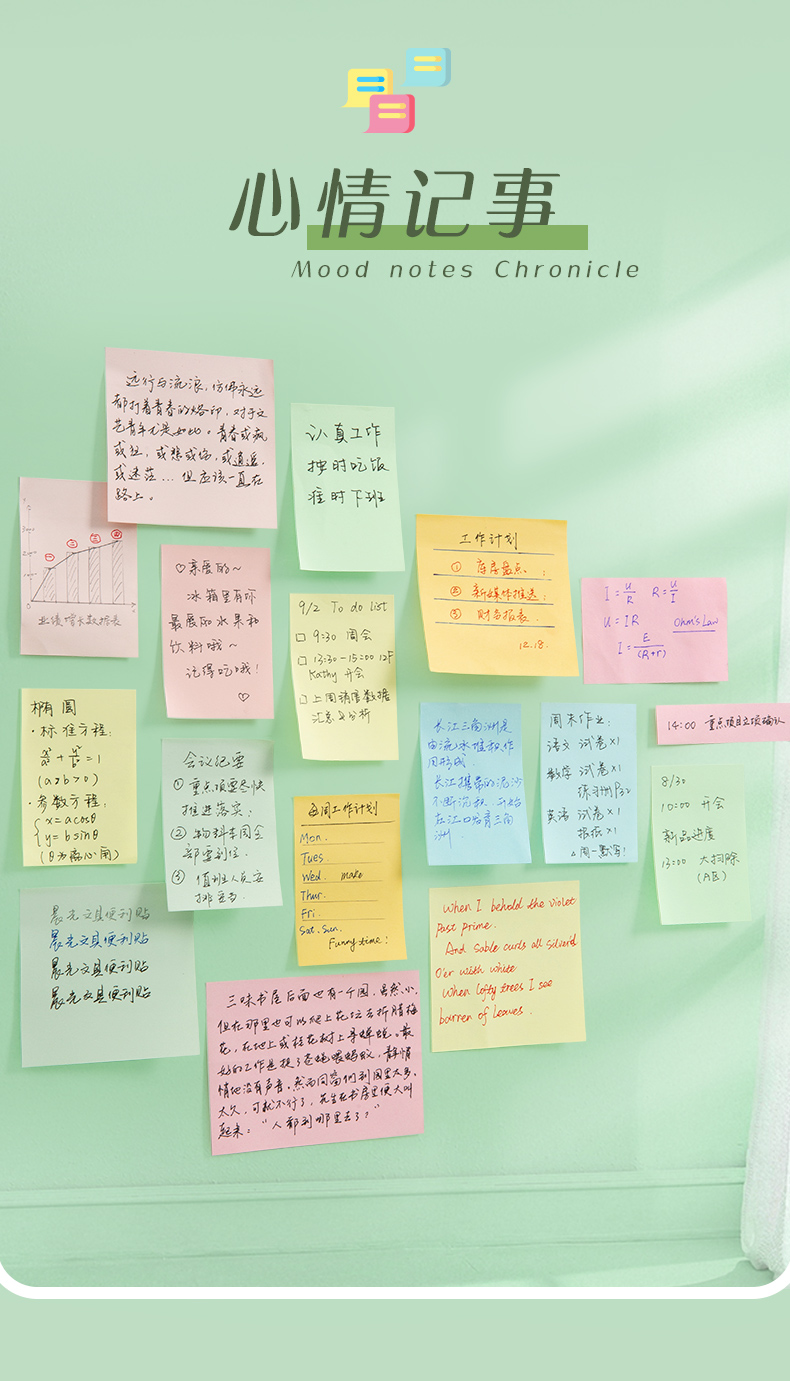 心情记事
Mood notes Chronicle
远行与流浪,仿佛永远
都打着青春的烙印,对于文
艺青年尤是如此。青春或疯
或狂,或悲或伤,或逍遥,
或迷茫...但应该一直在
路上。
认真工作
按时吃饭
准时下班
业绩增长数据表
♡亲爱的~
冰箱里有你
最爱的水果和
饮料哦~
记得吃哦!
♡
9/2 To do list
□ 9:30 周会
□ 13:30-15:00 12F
Kathy 开会
□ 上周销售数据
汇总与分析
工作计划
① 库房盘点。;
② 新媒体推送;
③ 财务报表.
12.18.
I=U/R R=U/I
U=IR Ohm's Law
I=E/(R+r)
椭圆
·标准方程:
x²/a²+y²/b²=1
(a>b>0)
·参数方程:
{x=acosθ
{y=bsinθ
(θ为离心角)
会议纪要
① 重点项要尽快
推进落实;
② 物料本周全
部要到位.
③ 值班人员安
排妥当
每周工作计划
Mon.
Tues
Wed. make
Thur.
Fri.
Sat. Sun.
Funny time:
长江三角洲是
由流水堆积作
用形成.
长江携带的泥沙
不断沉积,开始
在江口发育三角
洲.
周末作业:
语文 试卷×1
数学 试卷×1
练习册P32
英语 试卷×1
报纸×1
△周一默写!
14:00 重点项目立项确认
8/30
10:00 开会
新品进度
13:00 大扫除
(A区)
晨光文具便利贴
晨光文具便利贴
晨光文具便利贴
晨光文具便利贴
When I behold the violet
past prime.
And sable curls all silver'd
O'er with white
When lofty trees I see
barren of leaves.
三味书屋后面也有一个园,虽然小,
但在那里也可以爬上花坛去折腊梅
花,在地上或桂花树上寻蝉蜕。最
好的工作是捉了苍蝇喂蚂蚁,静悄
悄地没有声音。然而同窗们到园里太多,
太久,可就不行了,先生在书房里便大叫
起来:“人都到哪里去了?”